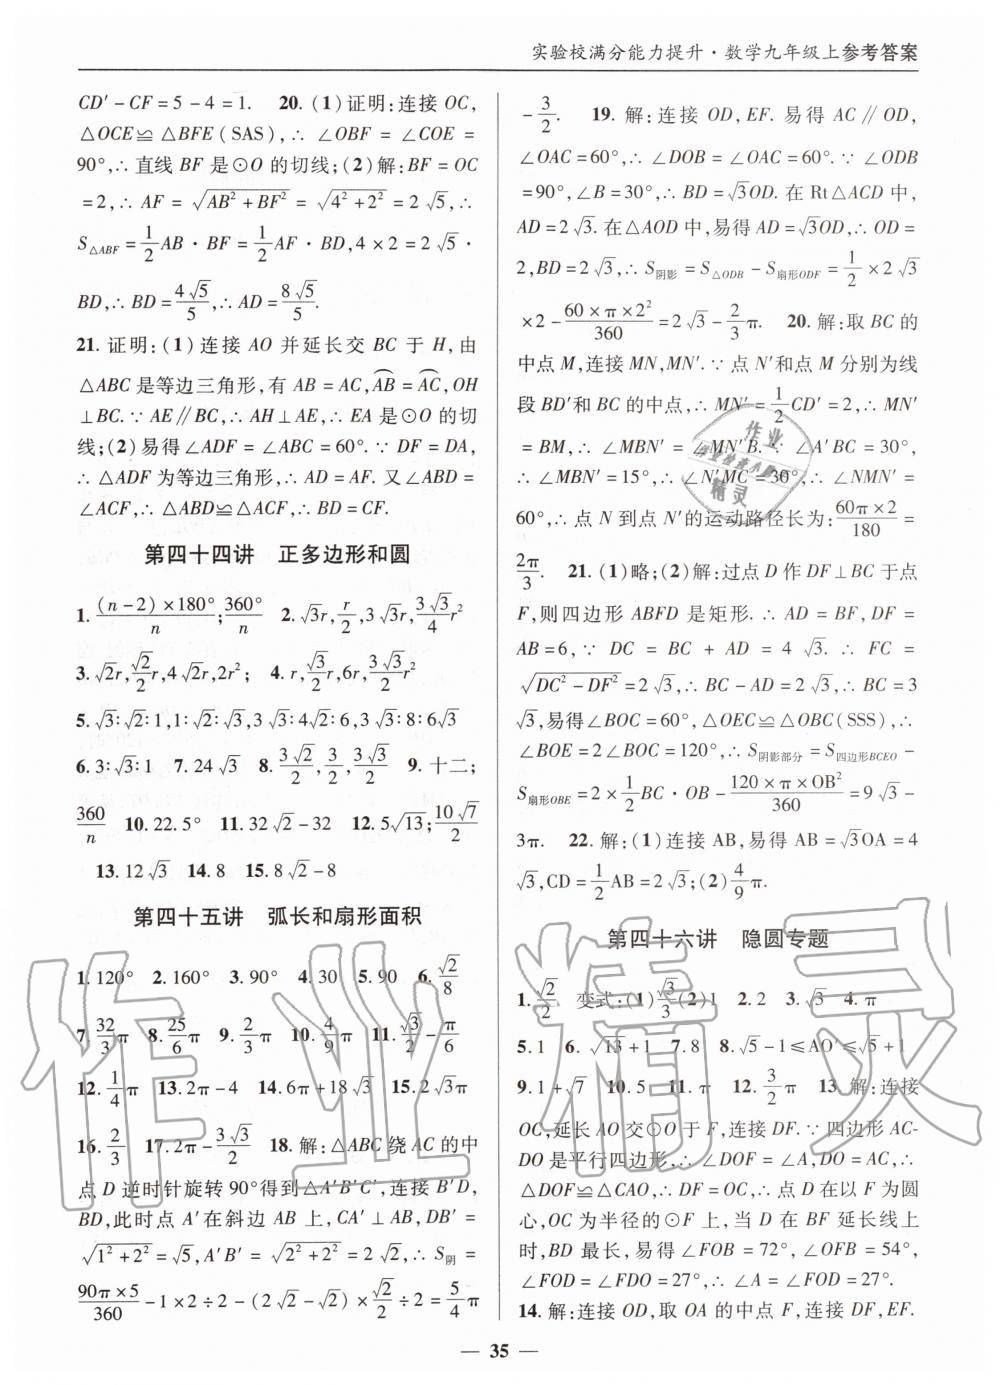 实验校满分能力提升·数学九年级上参考答案
CD′-CF=5-4=1. 20.(1)证明:连接 OC,
△OCE≌△BFE(SAS),∴∠OBF=∠COE=
90°,∴直线 BF 是⊙O 的切线;(2)解:BF=OC
=2,∴AF=√(AB²+BF²)=√(4²+2²)=2√5,∴
S△ABF=1/2 AB·BF=1/2 AF·BD,4×2=2√5·
BD,∴BD=4√5/5,∴AD=8√5/5.
21.证明:(1)连接 AO 并延长交 BC 于 H,由
△ABC 是等边三角形,有 AB=AC,⌒AB=⌒AC,OH
⊥BC.∵AE∥BC,∴AH⊥AE,∴EA 是⊙O 的切
线;(2)易得∠ADF=∠ABC=60°.∵DF=DA,
∴△ADF 为等边三角形,∴AD=AF.又∠ABD=
∠ACF,∴△ABD≌△ACF,∴BD=CF.
第四十四讲 正多边形和圆
1.(n-2)×180°/n;360°/n 2.√3r,r/2,3√3r,3√3/4 r²
3.√2r,√2/2 r,4√2r,2r²; 4.r,√3/2 r,6r,3√3/2 r²
5.√3∶√2∶1,1∶√2∶√3,3√3∶4√2∶6,3√3∶8∶6√3
6.3∶√3∶1 7.24√3 8.3√2/2,3/2,3√2/2 9.十二;
360/n 10.22.5° 11.32√2-32 12.5√13;10√7/2
13.12√3 14.8 15.8√2-8
第四十五讲 弧长和扇形面积
1.120° 2.160° 3.90° 4.30 5.90 6.√2/8
7.32/3 π 8.25/6 π 9.2/3 π 10.4/9 π 11.√3/2-π/6
12.1/4 π 13.2π-4 14.6π+18√3 15.2√3π
16.2/3 17.2π-3√3/2 18.解:△ABC 绕 AC 的中
点 D 逆时针旋转 90°得到△A′B′C′,连接 B′D,
BD,此时点 A′在斜边 AB 上,CA′⊥AB,DB′=
√(1²+2²)=√5,A′B′=√(2²+2²)=2√2,∴S阴=
90π×5/360-1×2÷2-(2√2-√2)×√2/2÷2=5/4 π
-3/2. 19.解:连接 OD,EF.易得 AC∥OD,
∠OAC=60°,∴∠DOB=∠OAC=60°.∵∠ODB
=90°,∠B=30°,∴BD=√3OD.在 Rt△ACD 中,
AD=2√3.在△AOD 中,易得 AD=√3OD,∴OD=
2,BD=2√3,∴S阴影=S△ODB-S扇形ODF=1/2×2√3
×2-60×π×2²/360=2√3-2/3 π. 20.解:取 BC 的
中点 M,连接 MN,MN′.∵点 N′和点 M 分别为线
段 BD′和 BC 的中点,∴MN′=1/2 CD′=2,∴MN′
=BM,∴∠MBN′=∠MN′B.∵∠A′BC=30°,
∴∠MBN′=15°,∴∠N′MC=30°,∴∠NMN′=
60°,∴点 N 到点 N′的运动路径长为:60π×2/180=
2π/3. 21.(1)略;(2)解:过点 D 作 DF⊥BC 于点
F,则四边形 ABFD 是矩形.∴AD=BF,DF=
AB=6,∵DC=BC+AD=4√3.∴FC=
√(DC²-DF²)=2√3,∴BC-AD=2√3,∴BC=3
√3,易得∠BOC=60°,△OEC≌△OBC(SSS),∴
∠BOE=2∠BOC=120°,∴S阴影部分=S四边形BCEO-
S扇形OBE=2×1/2 BC·OB-120×π×OB²/360=9√3-
3π. 22.解:(1)连接 AB,易得 AB=√3OA=4
√3,CD=1/2 AB=2√3;(2)4/9 π.
第四十六讲 隐圆专题
1.√2/2 变式:(1)√3/3 (2)1 2.2 3.√3 4.π
5.1 6.√13+1 7.8 8.√5-1≤AO′≤√5+1
9.1+√7 10.5 11.π 12.3/2 π 13.解:连接
OC,延长 AO 交⊙O 于 F,连接 DF.∵四边形 AC-
DO 是平行四边形,∴∠DOF=∠A,DO=AC,∴
△DOF≌△CAO,∴DF=OC,∴点 D 在以 F 为圆
心,OC 为半径的⊙F 上,当 D 在 BF 延长线上
时,BD 最长,易得∠FOB=72°,∠OFB=54°,
∠FOD=∠FDO=27°,∴∠A=∠FOD=27°.
14.解:连接 OD,取 OA 的中点 F,连接 DF,EF.
— 35 —
作业
精灵
作业精灵